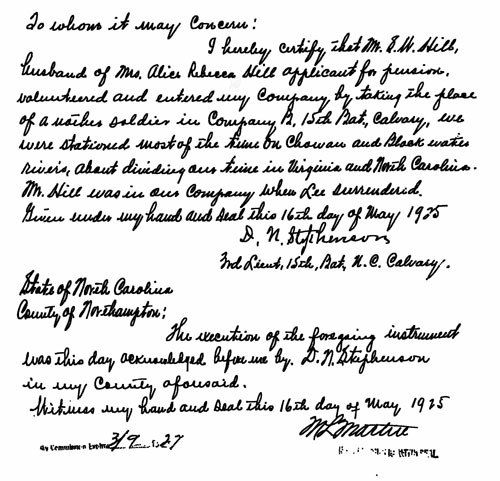 To whom it may Concern:
I hereby certify that Mr. E.W. Hill,
husband of Mrs. Alice Rebecca Hill applicant for pension,
volunteered and entered my Company by taking the place
of another soldier in Company B, 15th Bat, Calvary, we
were stationed most of the time on Chowan and Black water
rivers, about dividing our time in Virginia and North Carolina.
Mr. Hill was in our Company when Lee surrendered.
Given under my hand and seal this 16th day of May 1925
D. N. Stephenson
3rd Lieut, 15th, Bat, N.C. Calvary.
State of North Carolina
County of Northampton:
The execution of the foregoing instrument
was this day acknowledged before me by. D. N. Stephenson
in my County aforesaid.
Witness my hand and seal this 16th day of May 1925
My Commission Expires 3/9 27